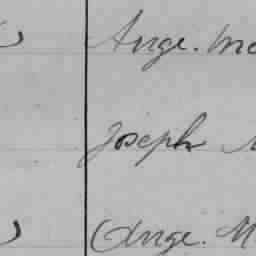 Ange. Me
Joseph
Ange. M